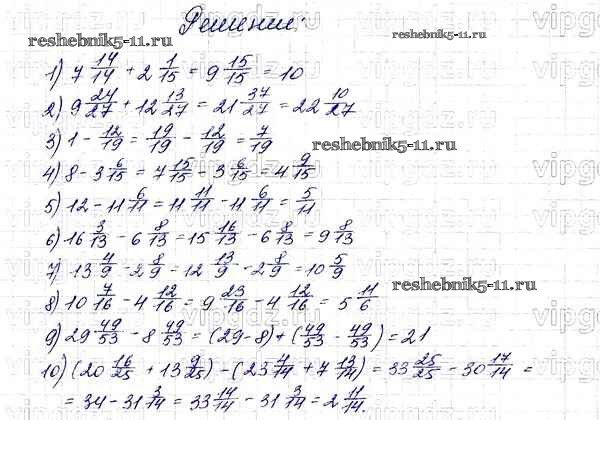 Решение:
reshebnik5-11.ru
reshebnik5-11.ru
1) 7 14/14 + 2 1/15 = 9 15/15 = 10
2) 9 24/27 + 12 13/27 = 21 37/27 = 22 10/27
3) 1 - 12/19 = 19/19 - 12/19 = 7/19
reshebnik5-11.ru
4) 8 - 3 6/15 = 7 15/15 - 3 6/15 = 4 9/15
5) 12 - 11 6/11 = 11 11/11 - 11 6/11 = 5/11
6) 16 3/13 - 6 8/13 = 15 16/13 - 6 8/13 = 9 8/13
7) 13 4/9 - 2 8/9 = 12 13/9 - 2 8/9 = 10 5/9
reshebnik5-11.ru
8) 10 7/16 - 4 12/16 = 9 23/16 - 4 12/16 = 5 11/6
9) 29 49/53 - 8 49/53 = (29-8) + (49/53 - 49/53) = 21
10) (20 16/25 + 13 9/25) - (23 4/14 + 7 13/14) = 33 25/25 - 30 17/14 =
= 34 - 31 3/14 = 33 14/14 - 31 3/14 = 2 11/14.